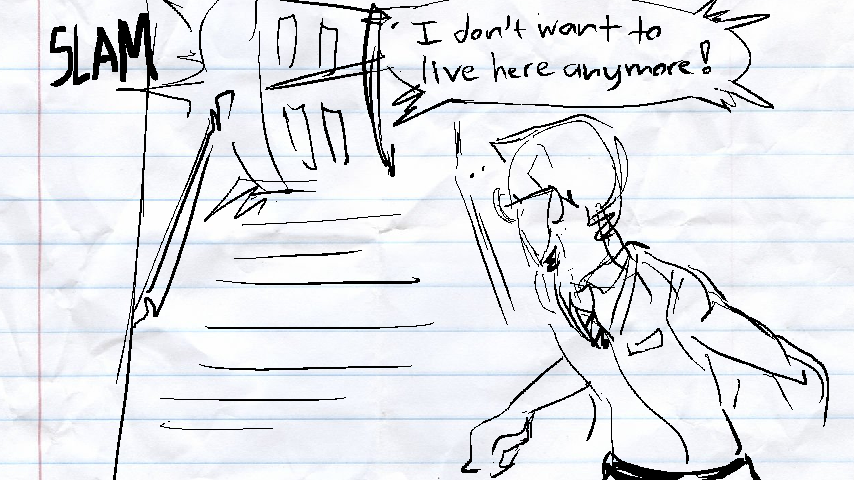 SLAM
I don't want to
live here anymore!